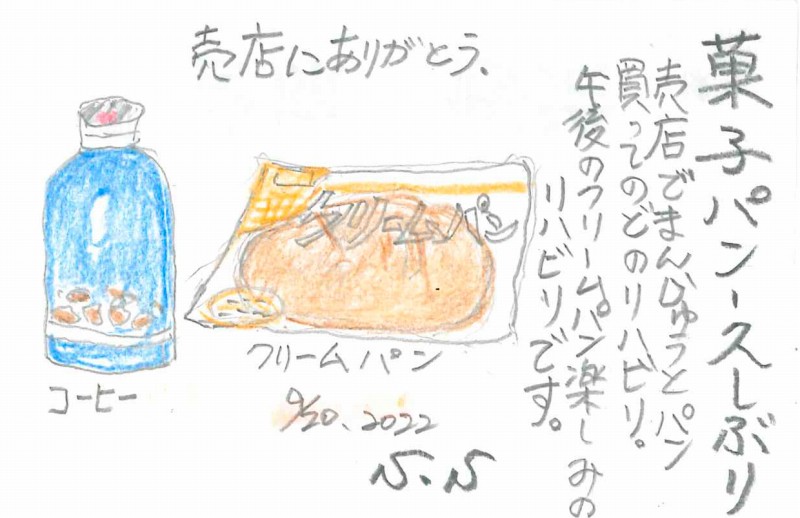 売店にありがとう、
菓子パン、久しぶり
売店でまんじゅうとパン
買ってのどのリハビリ。
午後のクリームパン楽しみの
リハビリです。
クリームパン
クリームパン
コーヒー
9/20、2022